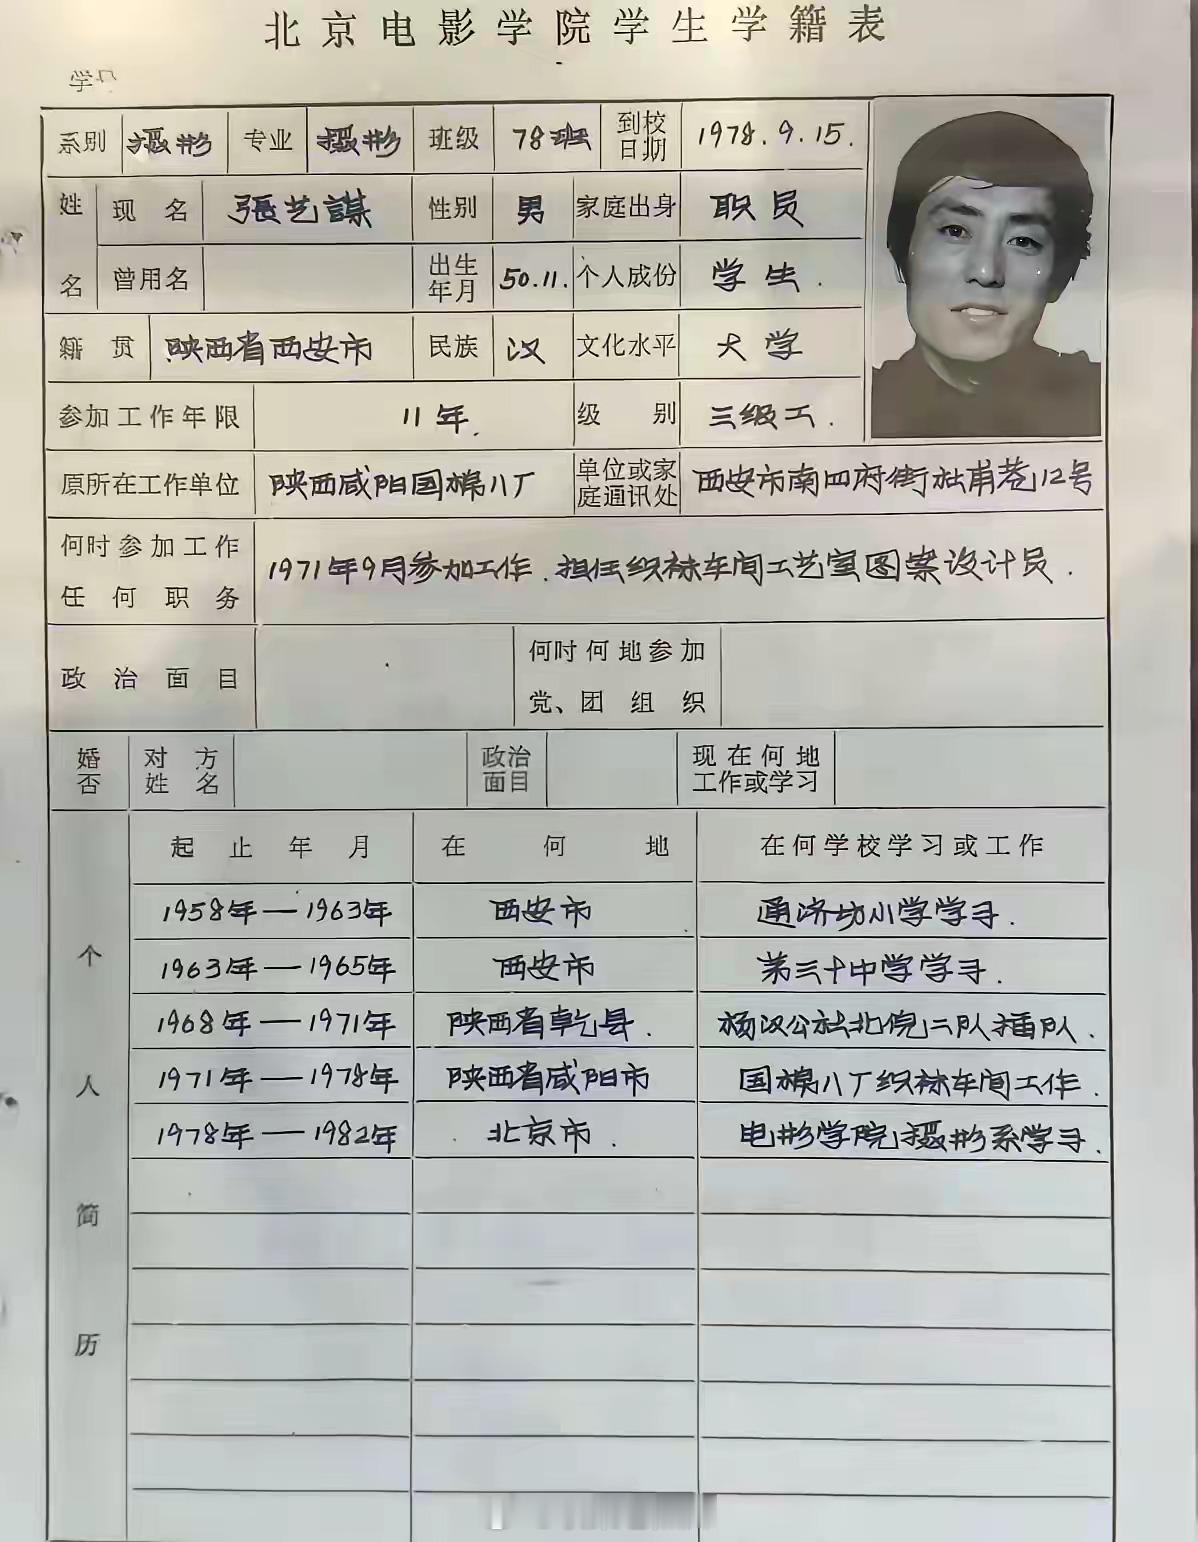 北京电影学院学生学籍表
学号
系别 摄影 专业 摄影 班级 78班 到校日期 1978.9.15.
姓名 现名 張艺謀 性别 男 家庭出身 职员
曾用名 出生年月 50.11. 个人成份 学生.
籍贯 陕西省西安市 民族 汉 文化水平 大学
参加工作年限 11年. 级别 三级工.
原所在工作单位 陕西咸阳国棉八厂 单位或家庭通讯处 西安市南四府街社甫巷12号
何时参加工作任何职务 1971年9月参加工作.担任织袜车间工艺室图案设计员.
政治面目 何时何地参加党、团组织
婚否 对方姓名 政治面目 现在何地工作或学习
个人简历 起止年月 在何地 在何学校学习或工作
1958年—1963年 西安市 通济坊小学学习.
1963年—1965年 西安市 第三十中学学习.
1968年—1971年 陕西省乾县. 杨汉公社北倪二队插队.
1971年—1978年 陕西省咸阳市 国棉八厂织袜车间工作.
1978年—1982年 北京市. 电影学院摄影系学习.